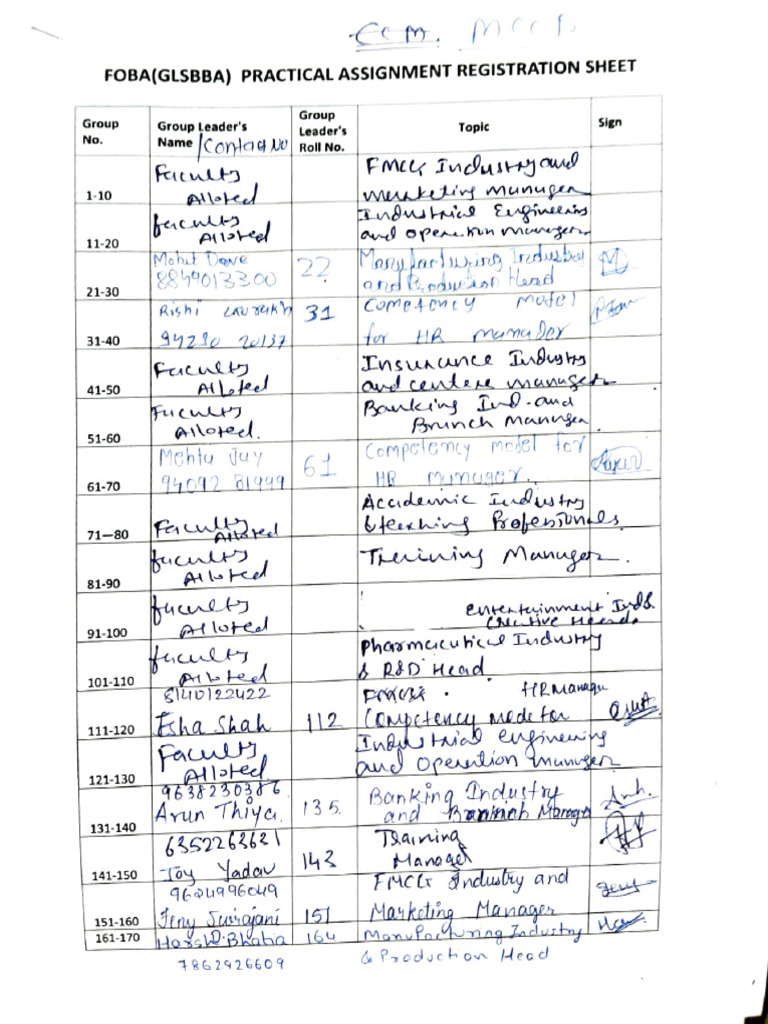 CCM. MCCB
FOBA(GLSBBA) PRACTICAL ASSIGNMENT REGISTRATION SHEET
Group No. Group Leader's Name /Contact No Group Leader's Roll No. Topic Sign
1-10 Faculty Alloted FMCG Industry and marketing manager
11-20 faculty Alloted Industrial Engineering and operation manager
21-30 Mohit Dave 8849013300 22 Manufacturing Industry and Production Head
31-40 Rishi 94290 20137 31 Competency model for HR manader
41-50 Faculty Alloted Insurance Industry and centere manager
51-60 Faculty Alloted. Banking Ind. and Branch Manager
61-70 Mehta Jay 94092 81999 61 Competency model for HR manager.
71—80 Faculty Alloted Accademic Industry & teaching Professionals
81-90 faculty Alloted Training Manager.
91-100 faculty Alloted entertainment Ind & Creative Head
101-110 faculty Alloted pharmacutical Industry & R&D Head
111-120 8140122422 Esha Shah 112 HR Manager Competency mode for
121-130 Faculty Alloted Industrial engineering and operation manager
131-140 9638230386 Arun Thiya. 135. Banking Industry and Manager
141-150 6352263631 Joy Yadav 143 Training Manager
151-160 9624996049 Jeny Surajani 151 FMCG Industry and Marketing Manager
161-170 Harsh Bhatia 164 Manufacturing Industry
7862926609 & Production Head